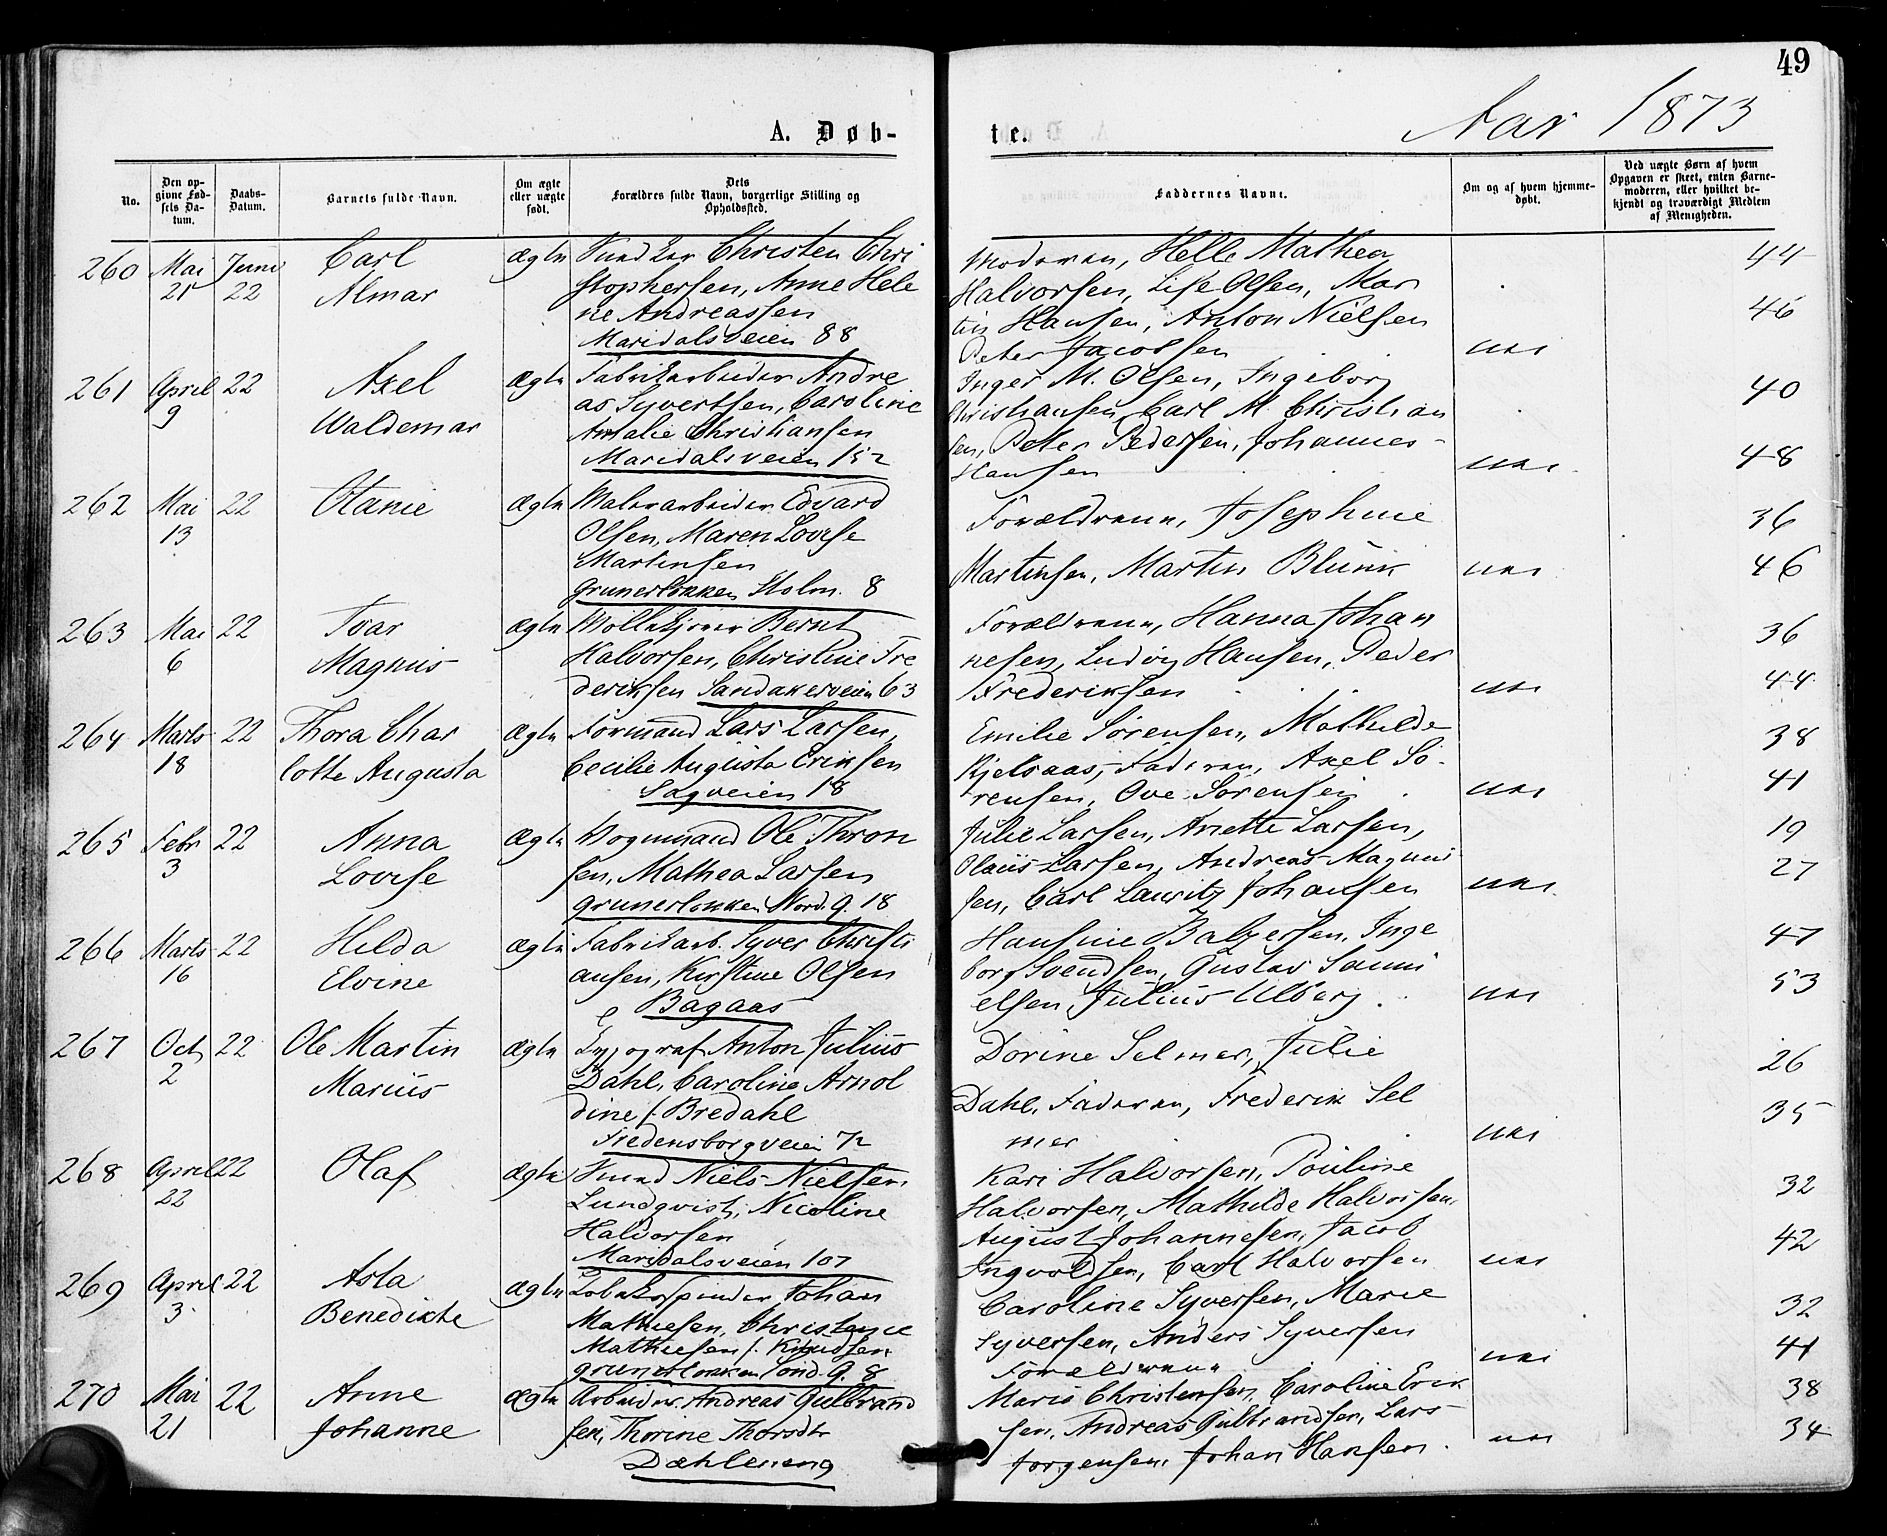 49
Aar 1873
A. Døb-
te.
No.
Den op-
givne Fød-
sels Da-
tum.
Daabs-
Datum.
Barnets fulde Navn.
Om ægte
eller uægte
født.
Dets
Forældres fulde Navn, borgerlige Stilling og
Opholdssted.
Faddernes Navne.
Om og af hvem hjemme-
døbt.
Ved uægte Børn af hvem
Opgaven er skeet, enten Barne-
moderen, eller hvilket be-
kjendt og troværdigt Medlem
af Menigheden.
260 Mai Juni Carl ægte Christen Chri Moderen, Helle Mathea 44
21 22 Almar stophersen, Anne Hele Halvorsen, Lise Olsen, Mar
ne Andreassen tin Hansen, Anton Nielsen 46
Maridalsveien 88 Peter Jacobsen
261 April 22 Axel ægte Fabrikarbeider Andre Inger M. Olsen, Ingeborg 40
9 Waldemar as Syvertsen, Caroline Christiansen, Carl M. Christian
Amalie Christiansen sen, Peter Pedersen, Johannes 48
Maridalsveien 152 Hansen
262 Mai 22 Otanie ægte Edvard Forældrene, Josephine 36
13 Olsen, Maren Lovise
Martinsen Martinsen, Martin Blunk 46
Grunerløkken Holm. 8
263 Mai 22 Ivar ægte Bernt Forældrene, Hanna Johan 36
6 Magnus Halvorsen, Christine Fre nesen, Ludvig Hansen, Peder
deriksen Sandakerveien 63 Frederiksen 44
264 Marts 22 Thora Char ægte Formand Lars Larsen, Emilie Sørensen, Mathilde 38
18 lotte Augusta Cecilie Augusta Eriksen Kjelsaas, Faderen, Axel Sø
Sagveien 18 rensen, Ove Sørensen 41
265 Febr 22 Anna ægte Vognmand Ole Thron Julie Larsen, Anette Larsen, 19
3 Lovise sen, Mathea Larsen Olaus Larsen, Andreas Magnus 27
Grunerløkken Nord. G. 18 sen, Carl Lauritz Johansen
266 Marts 22 Hilda ægte Fabrikarb. Syver Christi Hansine Balzersen, Inge 47
16 Elvine ansen, Kirstine Olsen borg Svendsen, Gustav Samu 53
Bagaas elsen, Julius Ulberg
267 Oct 22 Ole Martin ægte Typograf Anton Julius Dorine Selmer, Julie 26
2 Marius Dahl, Caroline Arnol Dahl, Faderen, Frederik Sel 35
dine f. Bredahl mer
Fredensborgveien 72
268 April 22 Olaf ægte Niels Nielsen Kari Halvorsen, Pouline 32
22 Lundqvist, Nicoline Halvorsen, Mathilde Halvorsen,
Halvorsen August Johannesen, Jacob 42
Maridalsveien 107 Ingvoldsen, Carl Halvorsen
269 April 22 Asta ægte Johan Caroline Syversen, Marie 32
3 Benedikte Mathiesen, Christence Syversen, Anders Syversen
Mathiesen f. Knudsen Forældrene 41
Grunerløkken Sond. G. 8
270 Mai 22 Anne ægte Arbeider Andreas Gulbrand Maris Christensen, Caroline Erik 38
21 Johanne sen, Thorine Thorsdtr sen, Andreas Gulbrandsen, Lars 34
Dæhleneng Jorgensen, Johan Hansen